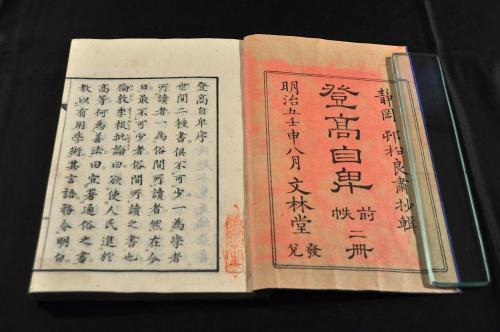 静岡 邨松良肅抄輯
登高自卑 前帙二冊
明治五壬申八月 文林堂 發兌
登高自卑序
世間二種書俱不可少一為學者
所讀者一為俗間所讀者然在今
日最不可少者俗間所讀之書也
倫敦季報批論曰欲使人民進於
高等何為善法曰宜著通俗之書
教以有用學術其言語務令明白